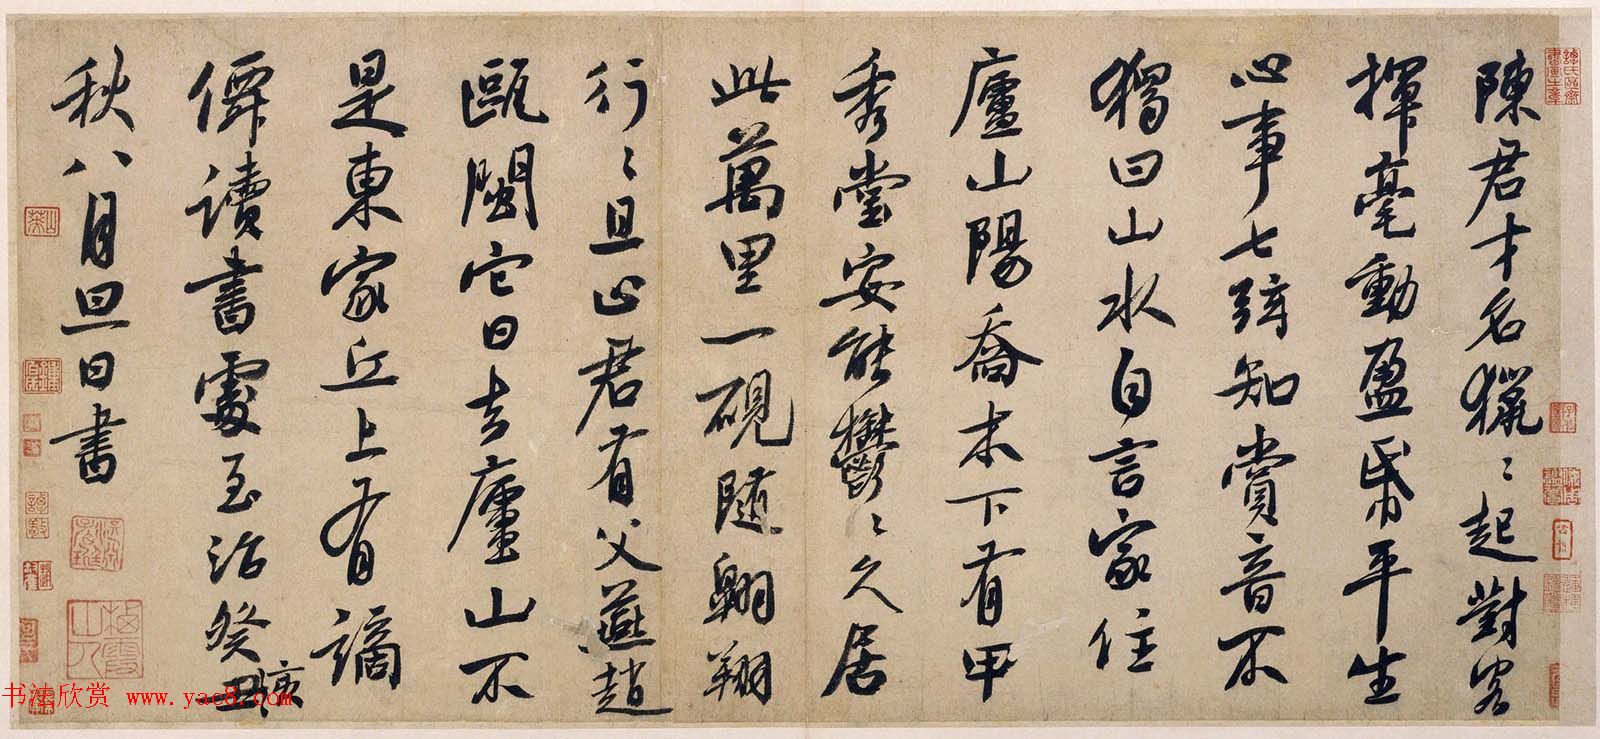 陳君才名獵〻起對客
揮毫動盈帋平生
心事七弦知賞音不
獨曰山水自言家住
廬山陽喬木下有甲
秀堂安能鬱鬱〻久居
此萬里一硯隨翱翔
行〻且止君有父燕趙
甌閩它日去廬山不
是東家丘上有謫
僊讀書處至治癸丑亥
秋八月旦日書
书法欣赏 www.yac8.com